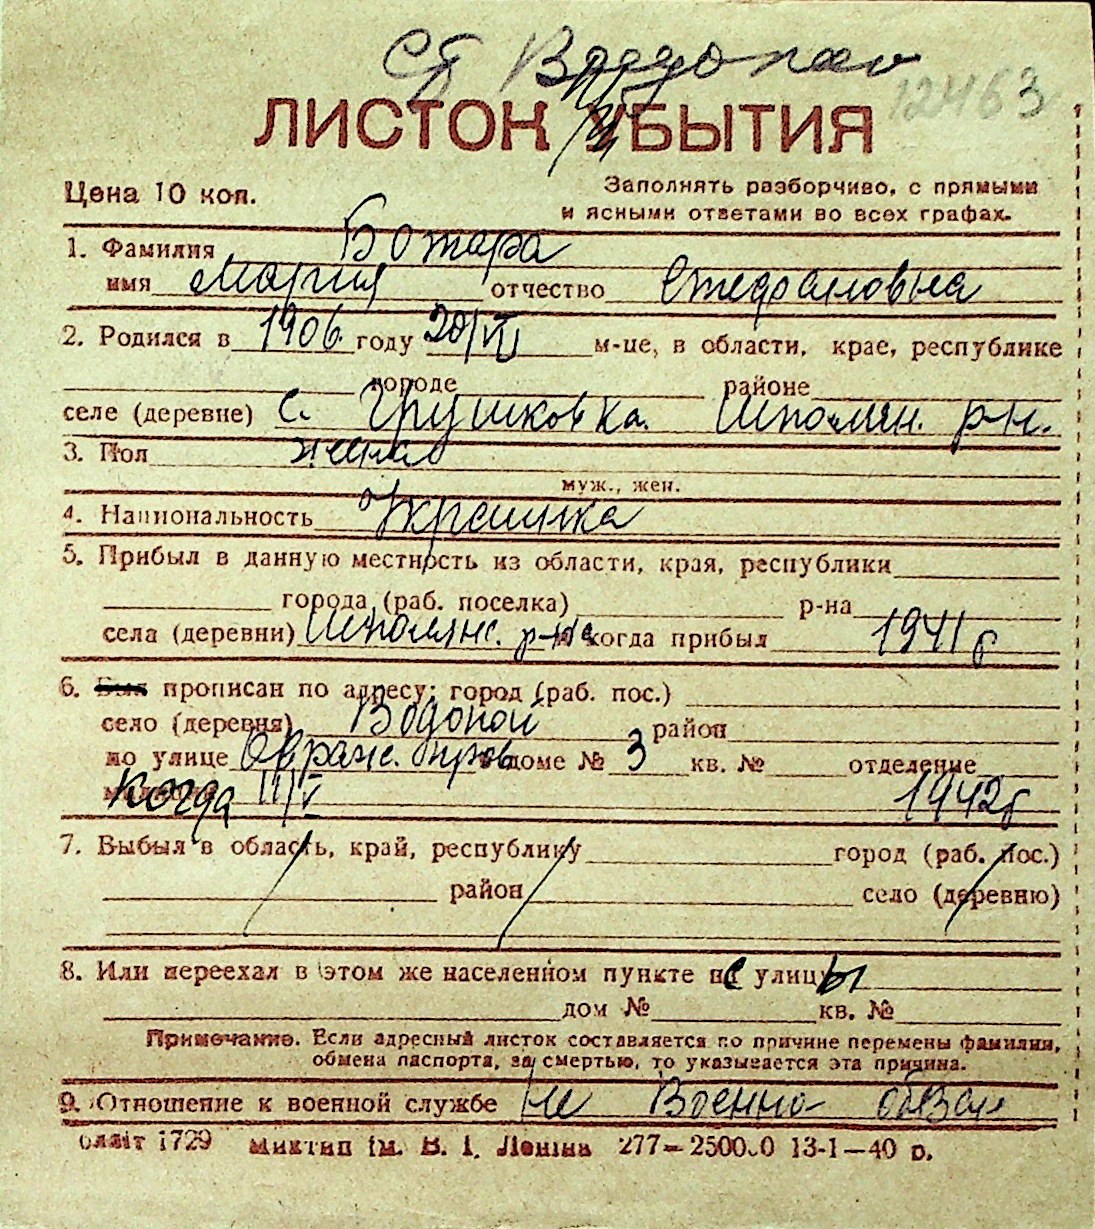 Ст Водопой
12463
ЛИСТОК УБЫТИЯ
Цена 10 коп.
Заполнять разборчиво, с прямыми
и ясными ответами во всех графах.
1. Фамилия Ботара
имя Мария отчество Стефановна
2. Родился в 1906 году 20/VI м-це, в области, крае, республике
городе районе
селе (деревне) с. Грушковка. Шполян. р-н.
3. Пол женс
муж., жен.
4. Национальность Украинка
5. Прибыл в данную местность из области, края, республики
города (раб. поселка) р-на
села (деревни) Шполянс. р-на когда прибыл 1941 г
6. Был прописан по адресу: город (раб. пос.)
село (деревня) Водопой район
по улице Овраж. доме № 3 кв. № отделение
когда 1942г
7. Выбыл в область, край, республику город (раб. пос.)
район село (деревню)
8. Или переехал в этом же населенном пункте не улицы
дом № кв. №
Примечание. Если адресный листок составляется по причине перемены фамилии,
обмена паспорта, за смертью, то указывается эта причина.
9. Отношение к военной службе Не Военно обязан
олліт 1729 Миктип ім. В. І. Леніна 277—250000 13-1—40 р.